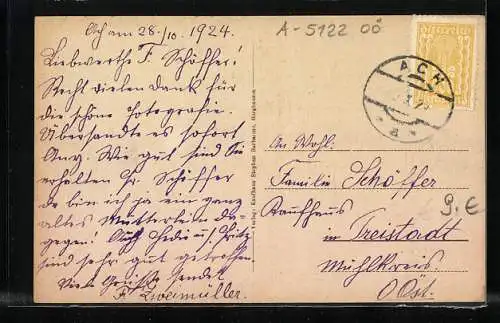 Ach am 28./10. 1924.
Liebwerthe F. Schöffer!
Recht vielen Dank für
die schöne Fotografie.
Übersandte es sofort
Anny. Wie gut sind Sie
erhalten Fr. Schöffer
da bin ich ja ein ganz
altes Mutterlein da-
gegen! Auch Hedi u. Fritz
sind sehr gut getroffen.
Viele Grüsse sendet
F. Zweimüller.
A-5122 OÖ
ACH
a
An Wohl.
Familie Schöffer
Kaufhaus
in Freistadt
Mühlkreis.
O.Öst.